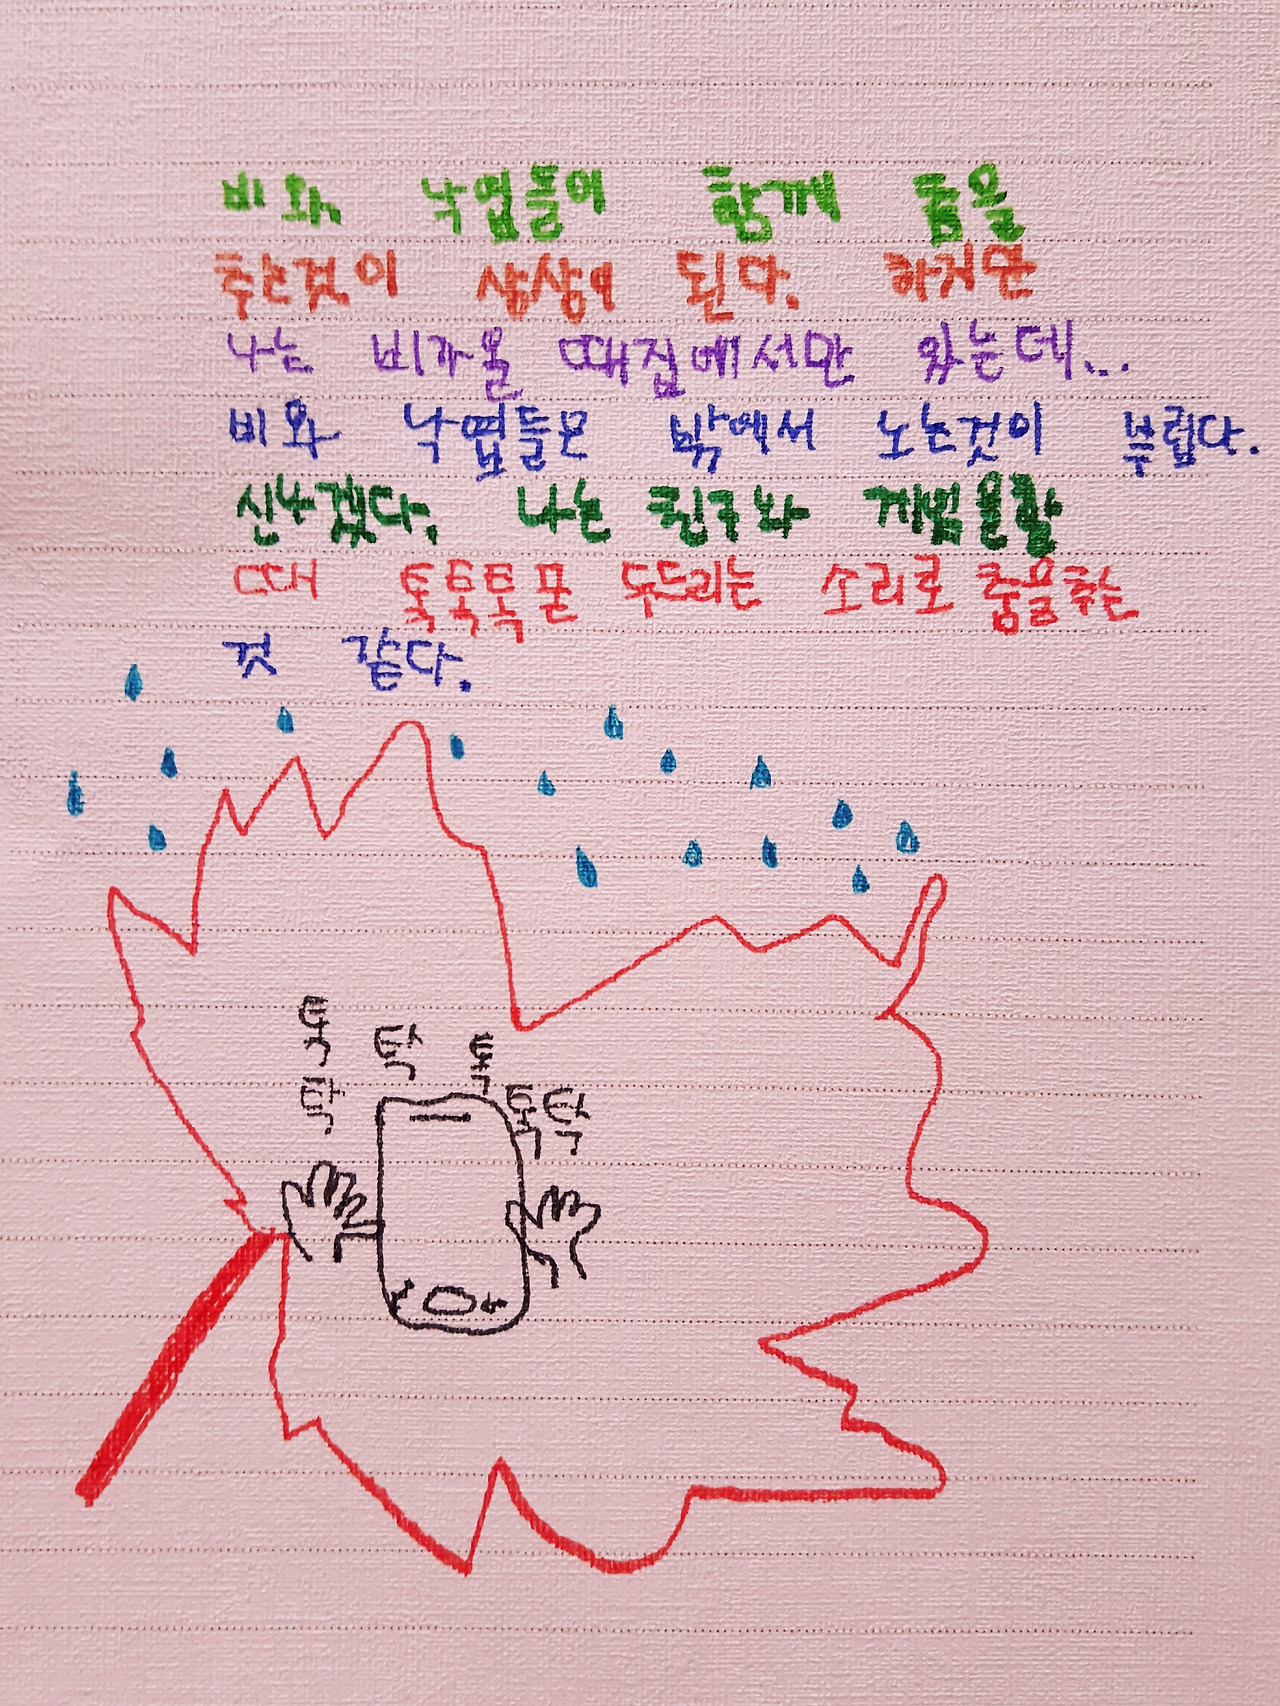 비와 낙엽들이 함께 춤을
추는것이 상상이 된다. 하지만
나는 비가올 때집에서만 있는데...
비와 낙엽들은 밖에서 노는것이 부럽다.
신나겠다. 나는 친구와 게임을할
때 톡톡톡톡 두드리는 소리로 춤을추는
것 같다.
톡 탁 톡
탁 톡탁